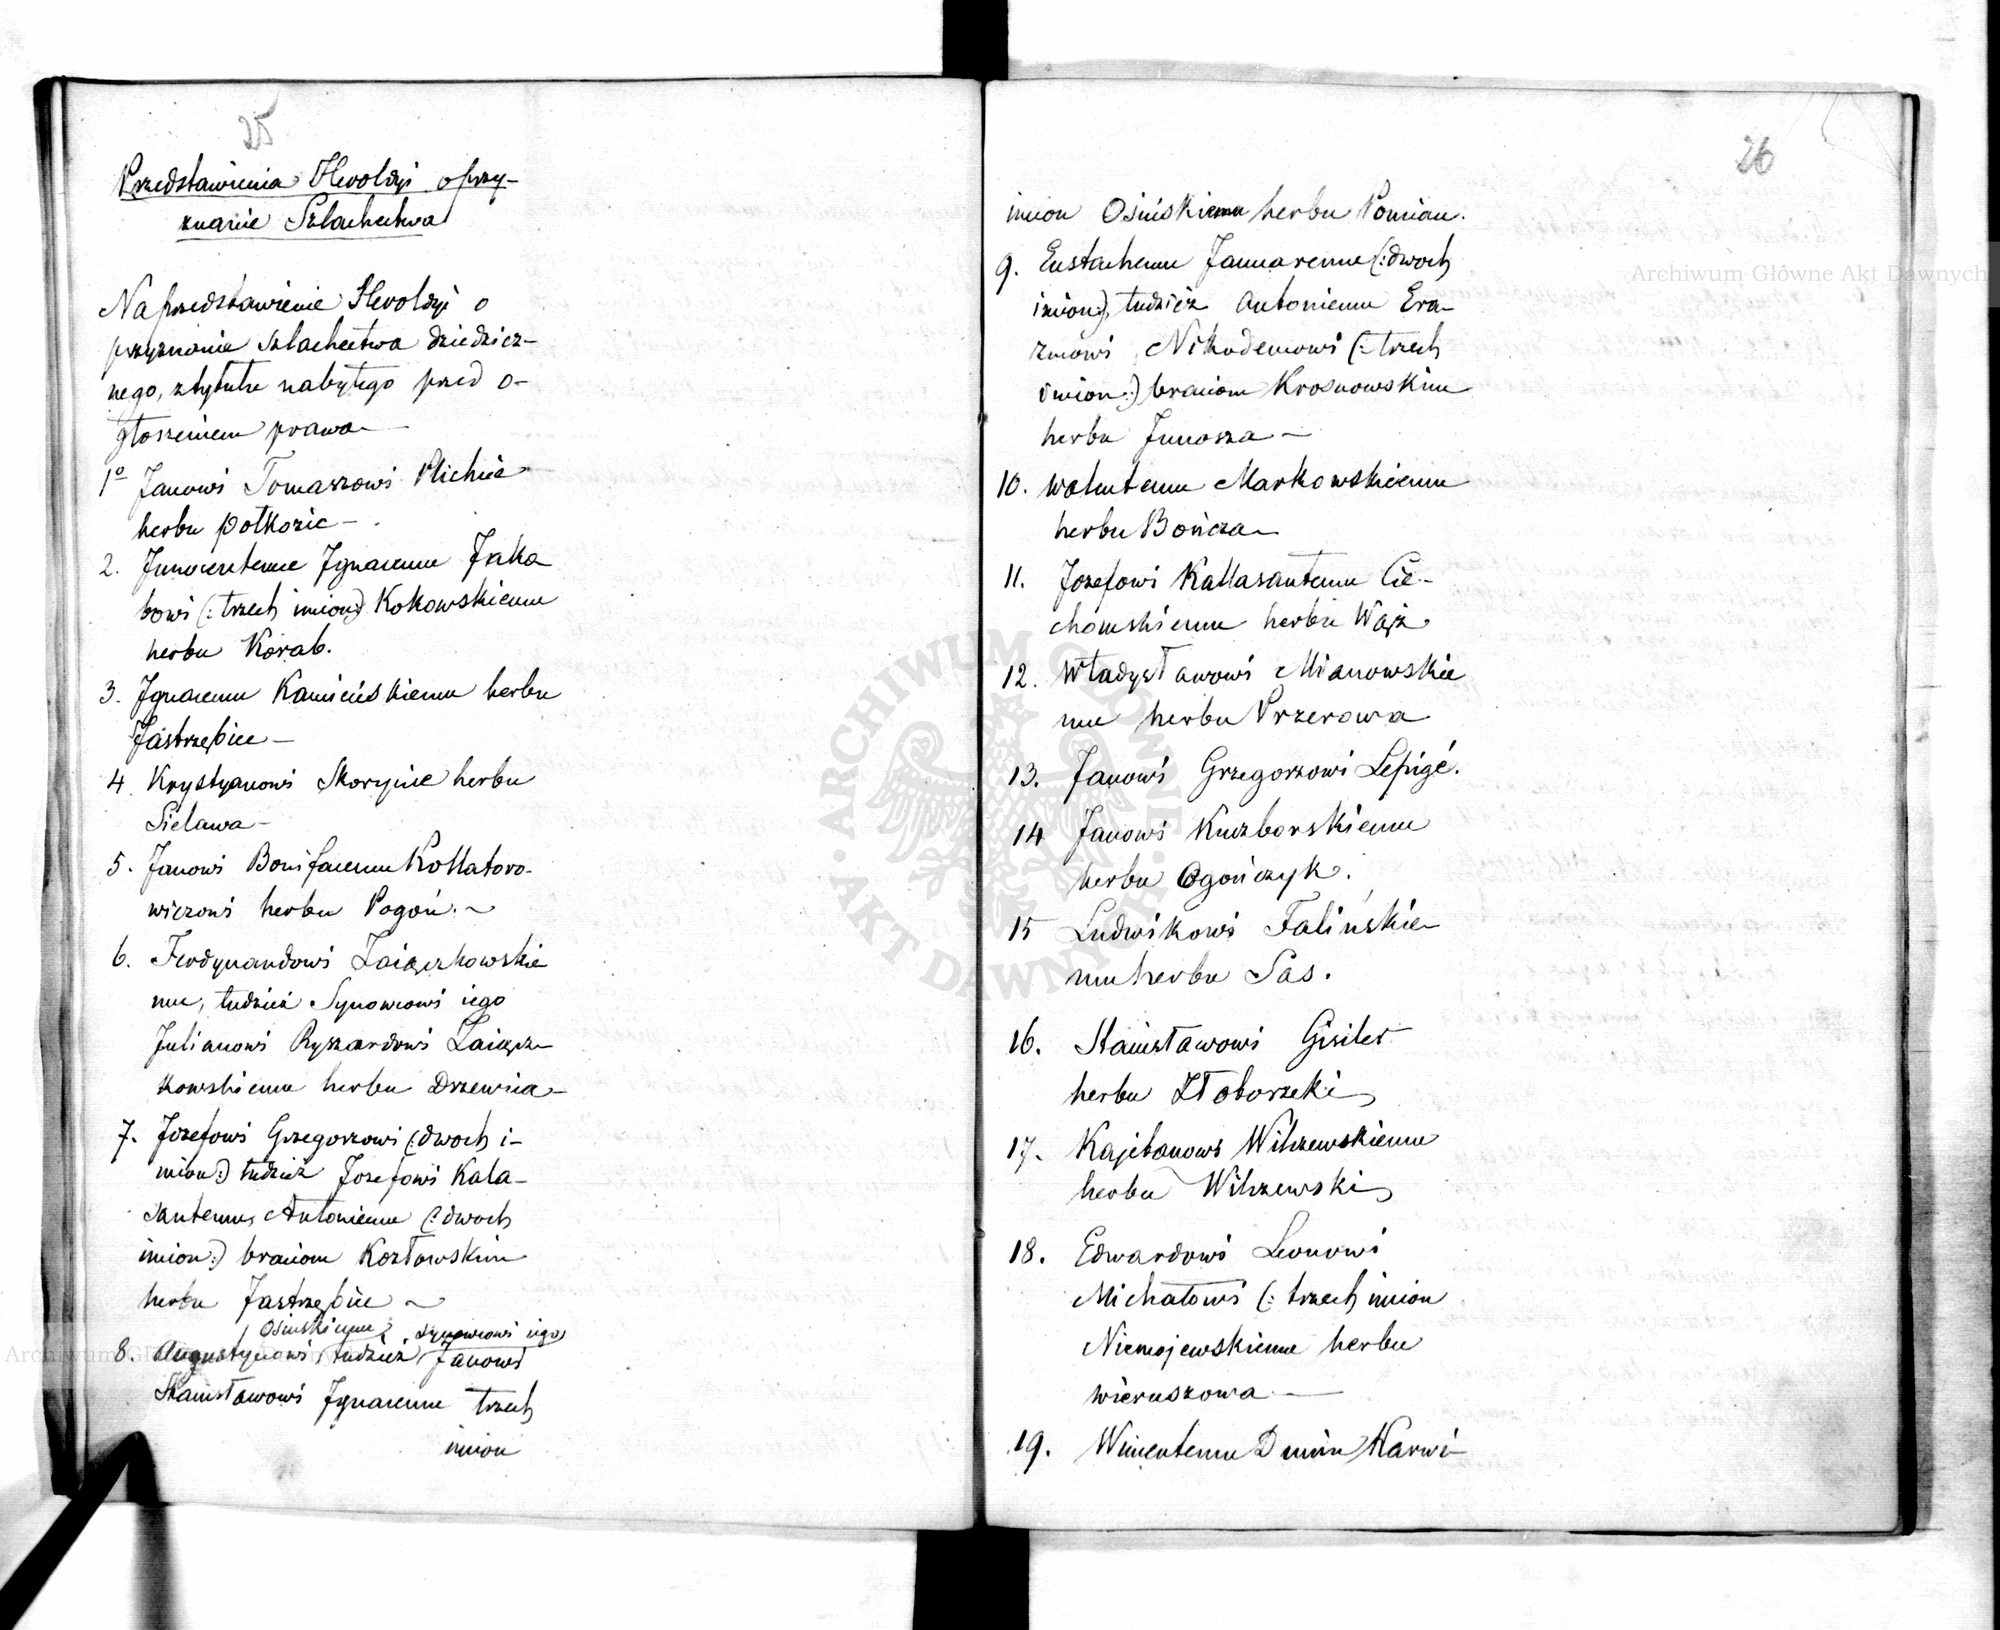 25
Przedstawienia Heroldyi o przy-
znanie Szlachectwa
Na przedstawienie Heroldyi o
przyznanie szlachectwa dziedzicz-
nego, z tytułu nabytego przed o-
głoszeniem prawa
1º Janowi Tomaszowi Plichcie
herbu Połkozic
2. Innocentemu Ignacemu Jaka
bowi (: trzech imion:) Kokowskiemu
herbu Korab.
3. Ignacemu Kamieńskiemu herbu
Jastrzębiec
4 Krystyanowi Skorynie herbu
Sielawa
5. Janowi Bonifacemu Kołłatoro-
wiczowi herbu Pogoń.
6. Ferdynandowi Zaiączkowskie
mu, tudzież Synowcowi iego
Julianowi Ryszardowi Zaiącz-
kowskiemu herbu Drzewica
7. Jozefowi Grzegorzowi (: dwoch i-
mion:) tudzież Jozefowi Kala-
santemu Antoniemu (: dwoch
imion:) braciom Kozłowskim
herbu Jastrzębiec
Osinskiemu synowcowi iego
8. Augustynowi, tudzież Janowi
Stanisławowi Ignacemu trzech
imion
26
imion Osińskiemu herbu Pomian.
9. Eustachemu Januaremu (: dwoch
imion:), tudzież Antoniemu Era-
zmowi Nikodemowi (: trzech
imion:) braciom Krosnowskim
herbu Junosza
10. Walentemu Markowskiemu
herbu Bończa
11. Jozefowi Kallasantemu Cie-
chomskiemu herbu Wąż
12. Władysławowi Mianowskie
mu herbu Przerowa
13. Janowi Grzegorzowi Lepigé.
14 Janowi Kuczborskiemu
herbu Ogończyk.
15 Ludwikowi Falińskie
mu herbu Sas.
16. Stanisławowi Gisiler
herbu Złoborzeki
17. Kajetanowi Wilczewskiemu
herbu Wilczewski
18. Edwardowi Leonowi
Michałowi (: trzech imion
Niemojewskiemu herbu
Wieruszowa
19. Wincentemu Dunin Karwi-
Archiwum Główne Akt Dawnych
ARCHIWUM GŁÓWNE AKT DAWNYCH